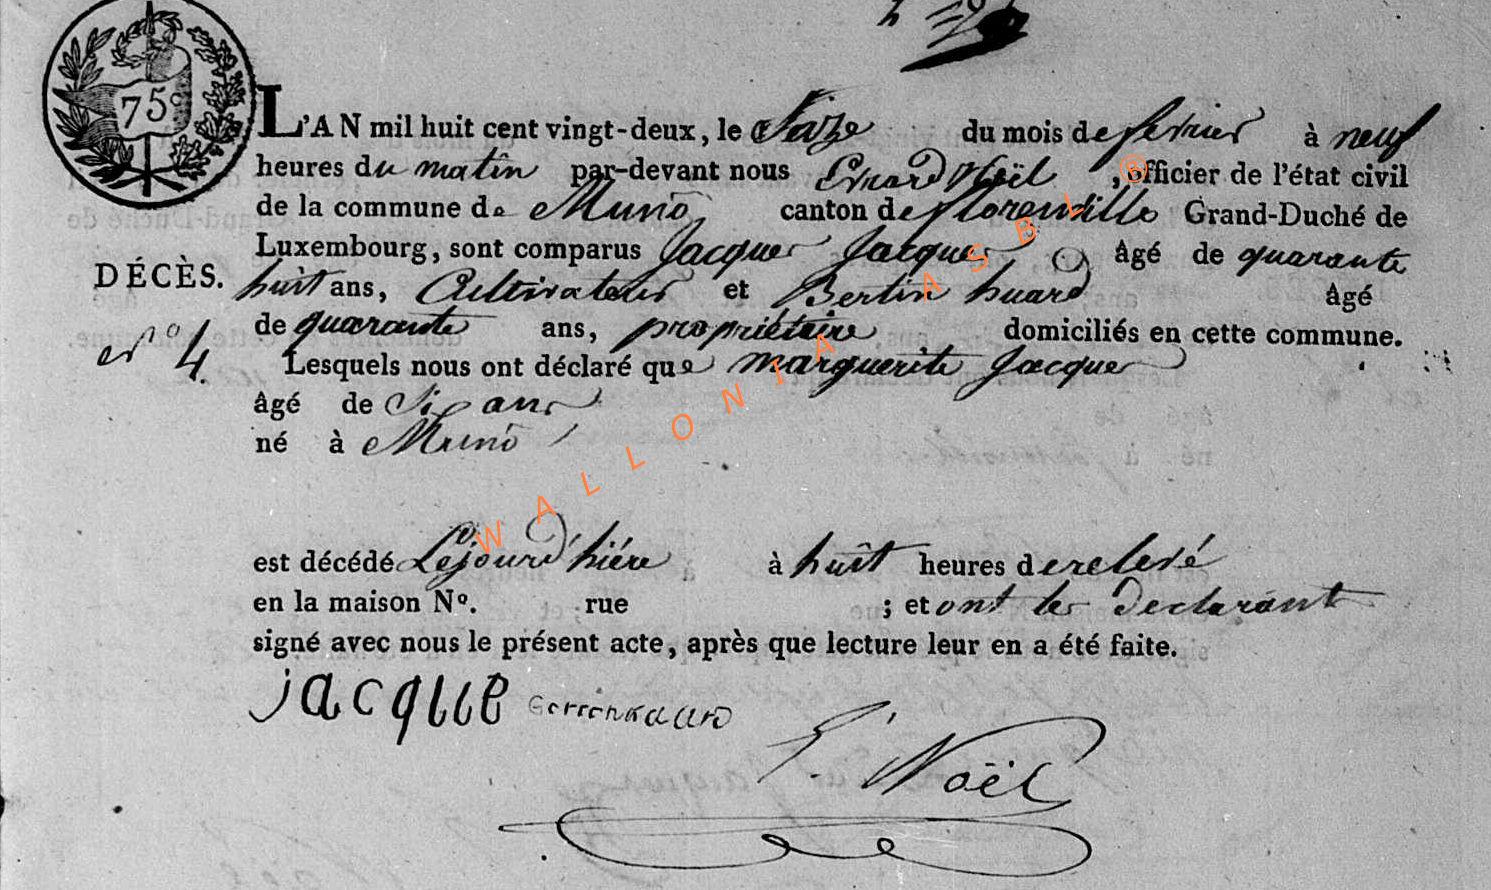 75c
L'AN mil huit cent vingt-deux, le Saize du mois de fevrier à neuf
heures du matin par-devant nous Evrard Noël, officier de l'état civil
de la commune de Muno canton de florenville Grand-Duché de
Luxembourg, sont comparus Jacques Jacques âgé de quarante
DÉCÈS.
huit ans, Cultivateur et Bertin huard âgé
de quarante ans, propriétaire domiciliés en cette commune.
nº 4.
Lesquels nous ont déclaré que marguerite Jacques
âgé de Si ans
né à Muno
est décédé Lejourd'hiére à huit heures de relevé
en la maison Nº. rue ; et ont les declarant
signé avec nous le présent acte, après que lecture leur en a été faite.
jacque
E. Noël
WALLONIA ASBL ®